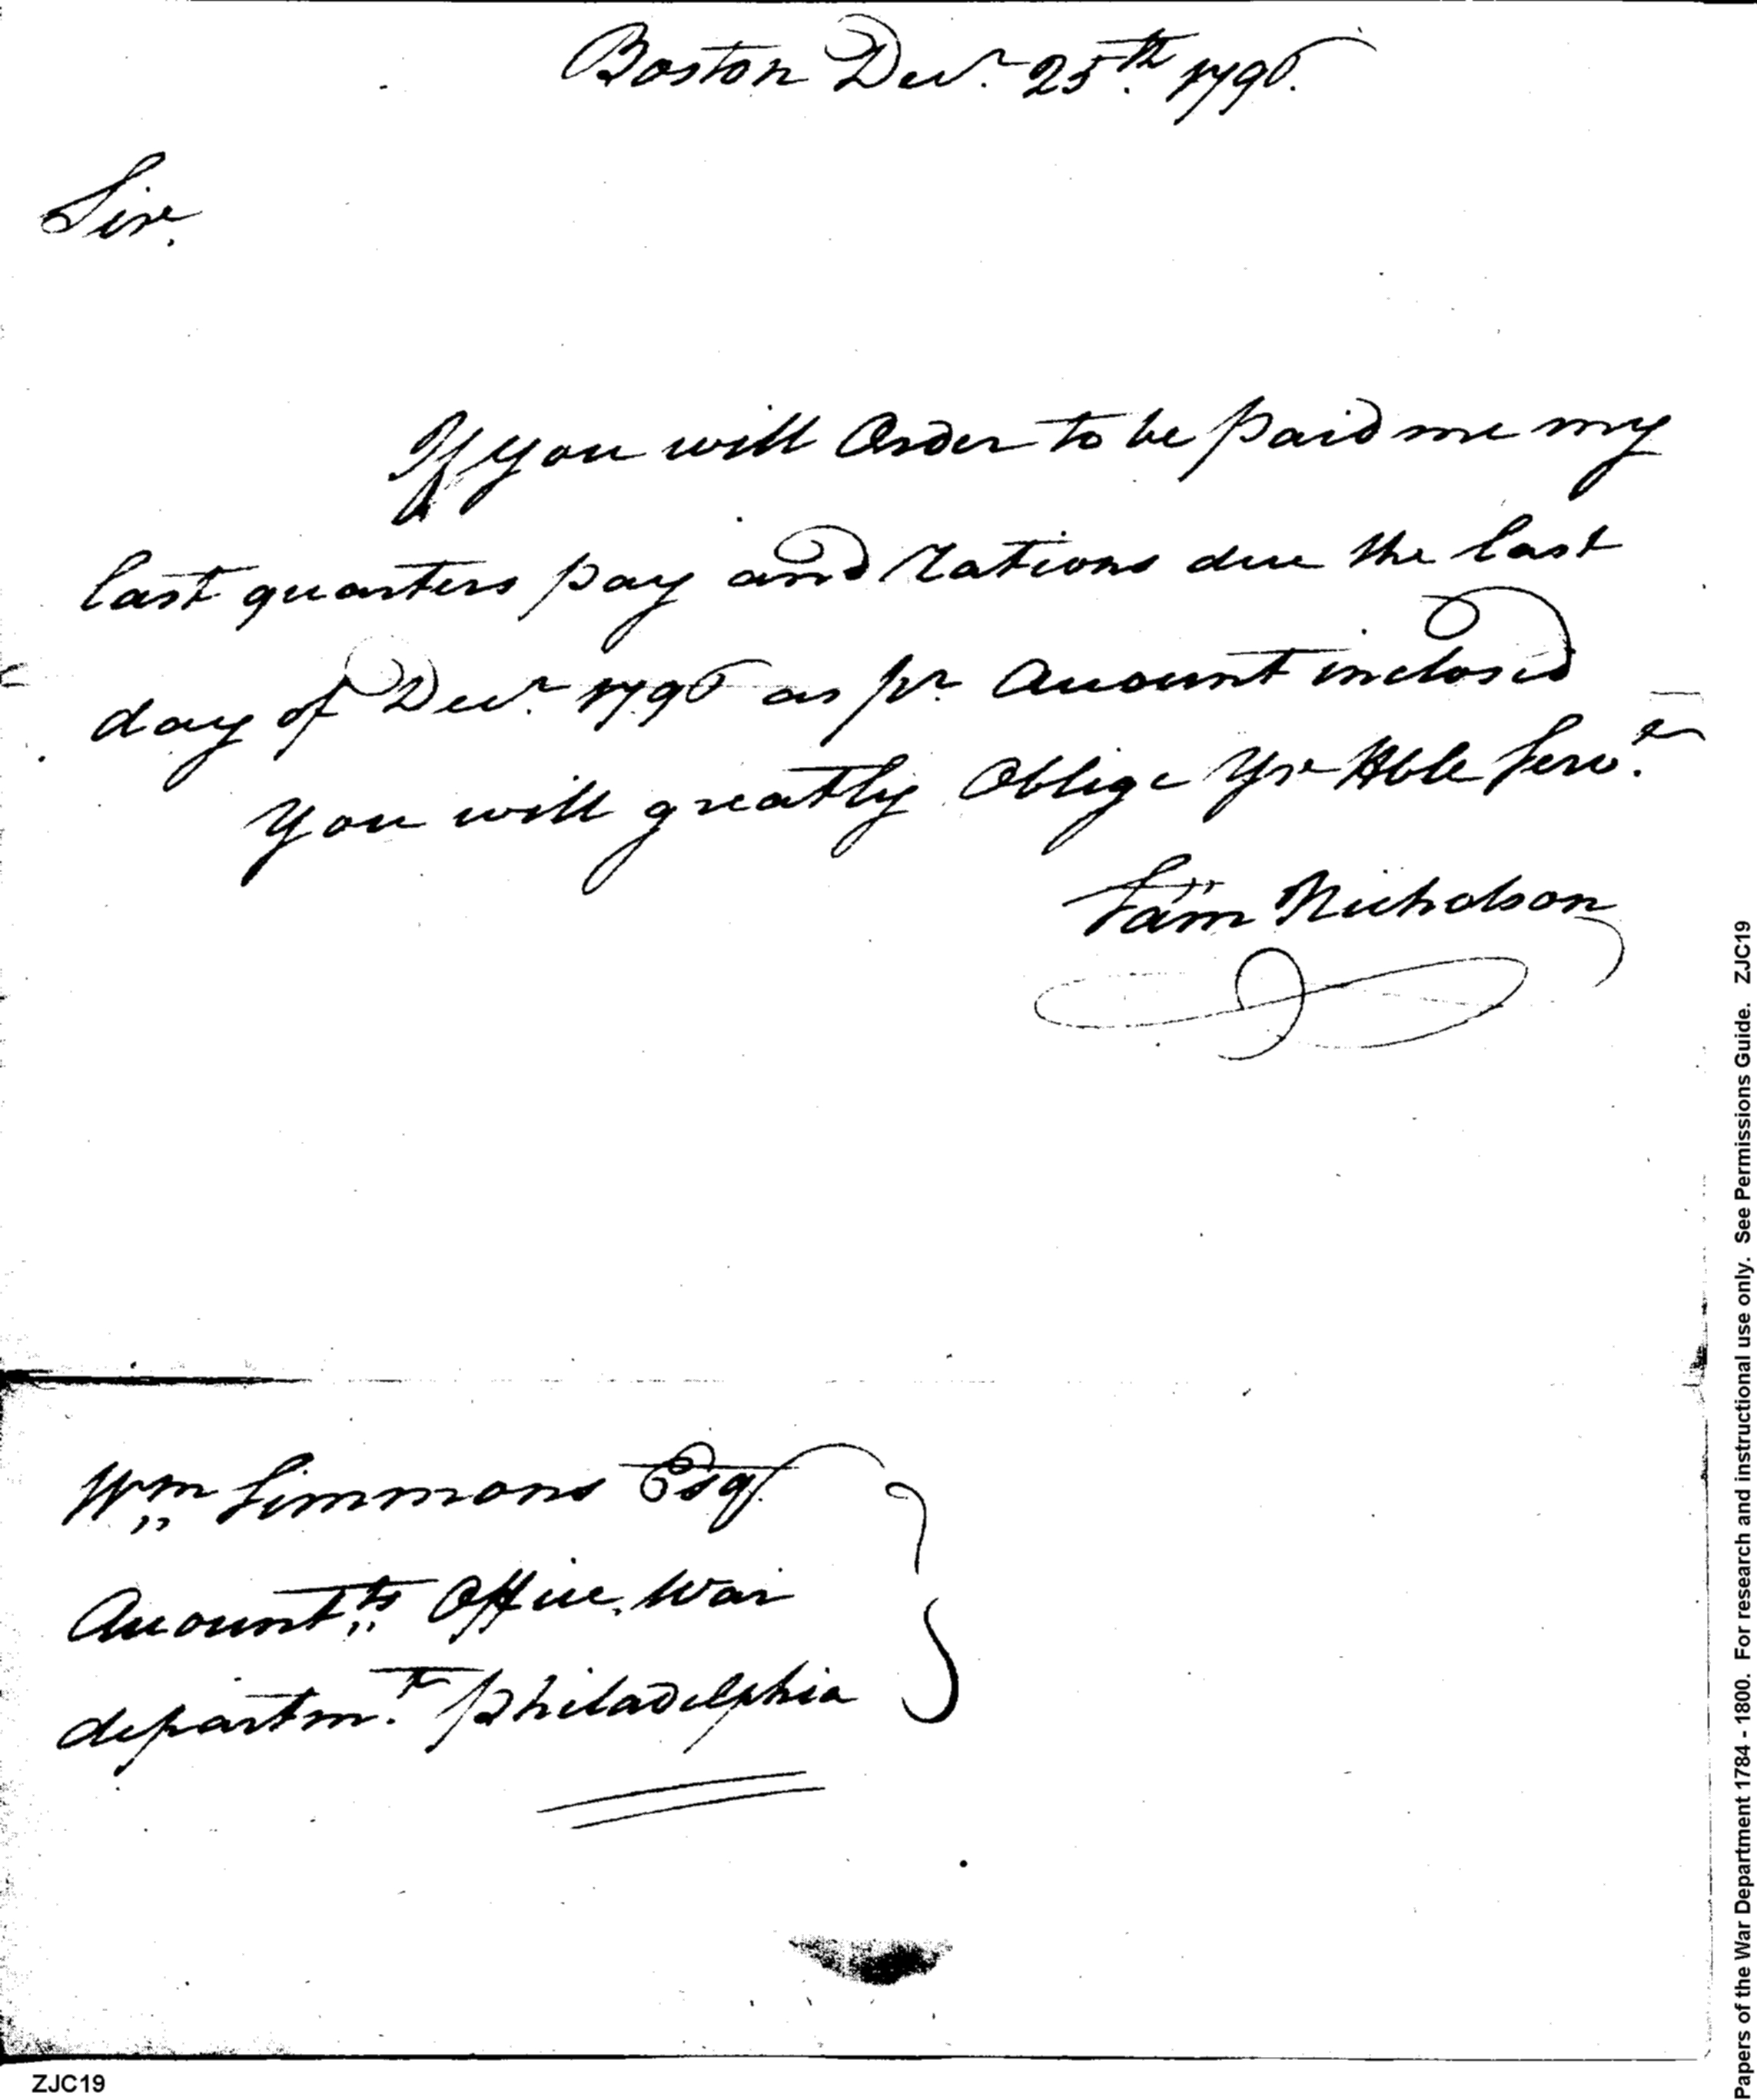 Boston Decr. 25th. 1796.
Sir.
If you will Order to be paid me my
last quarters pay and rations due the last
day of Decr. 1796 as pr. Account inclosed
you will greatly Oblige Yr Hble Serv.
Sam Nicholson
Wm Simmons Esqr.
Accountts Office, War
departmt. Philadelphia
Papers of the War Department 1784 - 1800. For research and instructional use only. See Permissions Guide. ZJC19
ZJC19